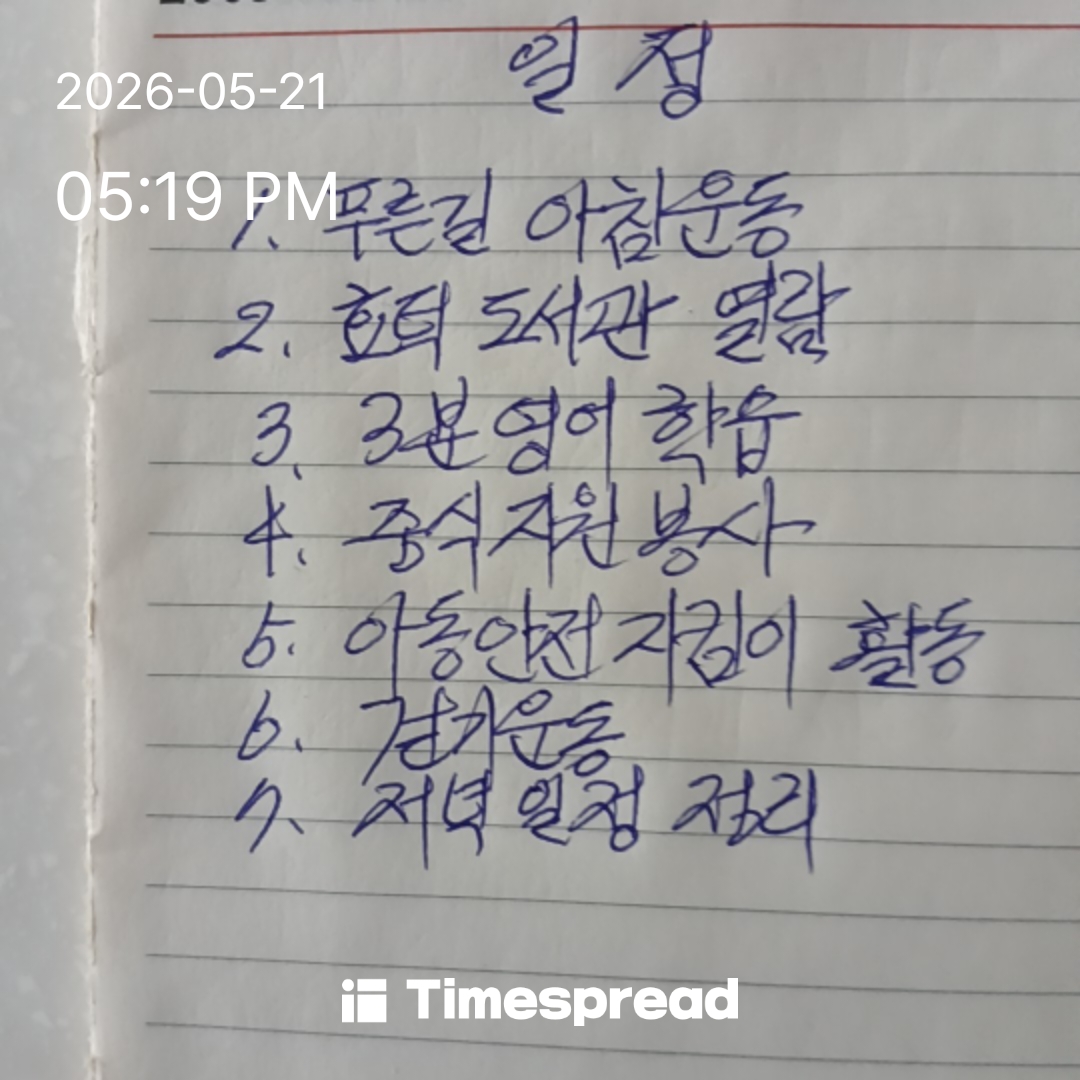 일 정
2026-05-21
05:19 PM
1. 푸른길 아침운동
2. 효덕 도서관 열람
3. 3분 영어 학습
4. 중식 자원 봉사
5. 아동안전 지킴이 활동
6. 걷기운동
7. 저녁 일정 정리
Timespread